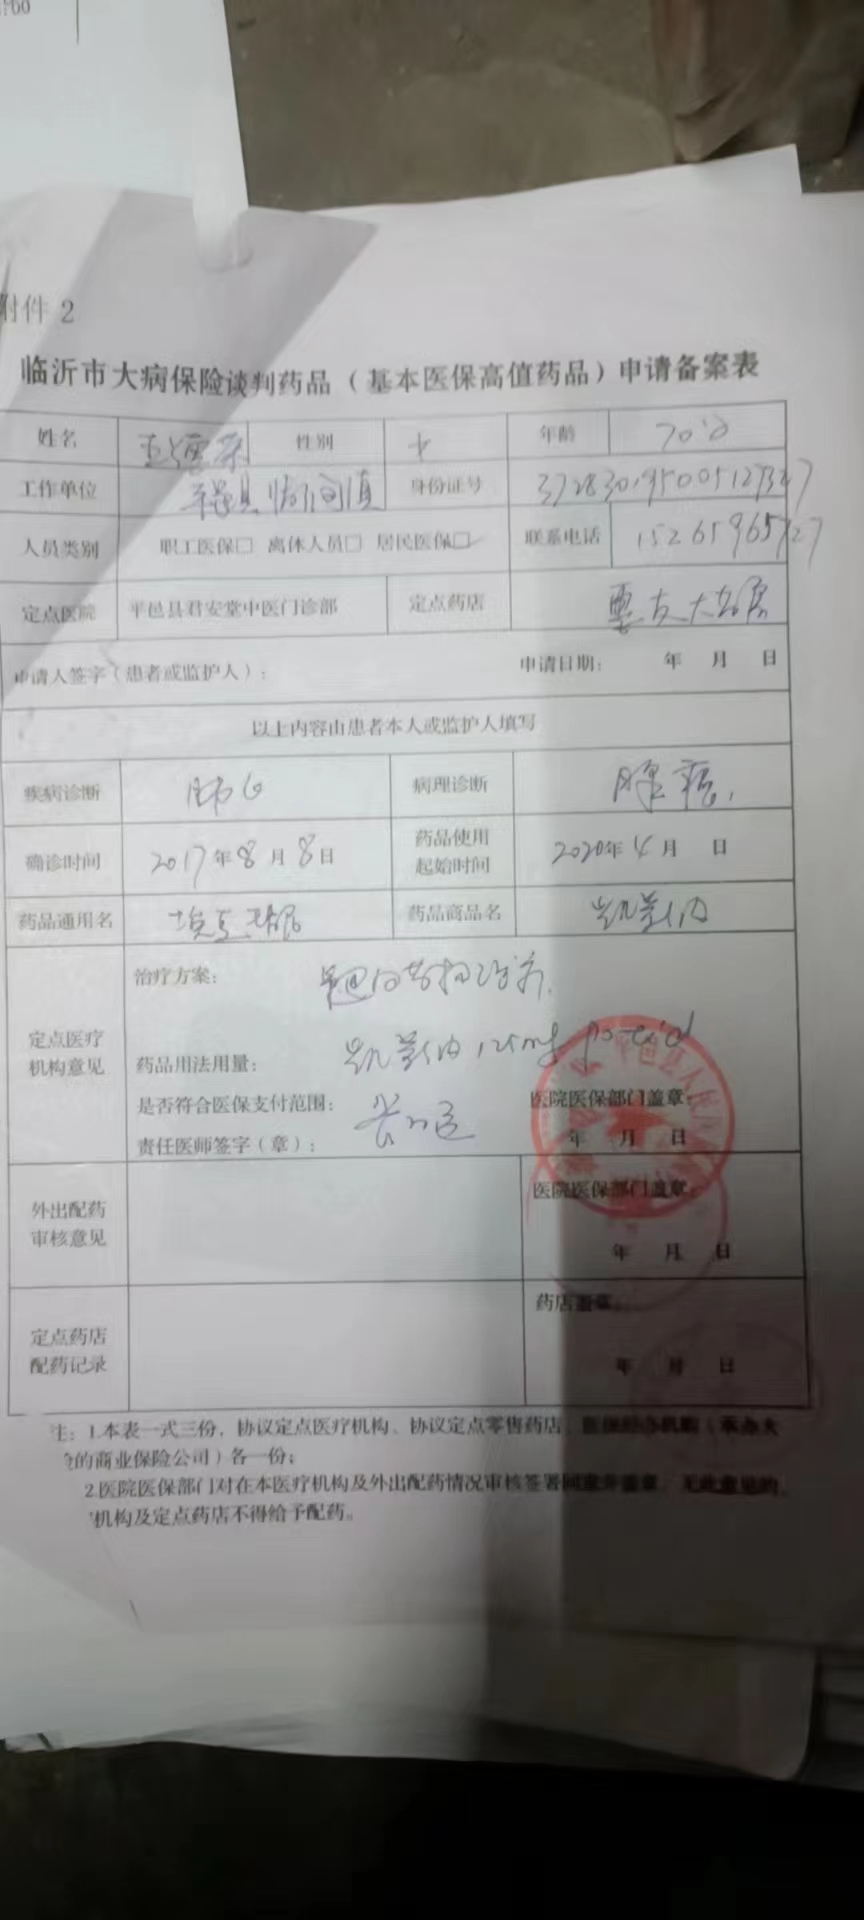 :00
附件 2
临沂市大病保险谈判药品（基本医保高值药品）申请备案表
姓名 性别 女 年龄 70岁
工作单位 平邑县临涧镇 身份证号
人员类别 职工医保□ 离休人员□ 居民医保□ 联系电话 15265965727
定点医院 平邑县君安堂中医门诊部 定点药店 大药房
申请人签字（患者或监护人）： 申请日期： 年 月 日
以上内容由患者本人或监护人填写
疾病诊断 肺Ca 病理诊断 腺癌
确诊时间 2017年8月8日 药品使用起始时间 2020年4月 日
药品通用名 埃克替尼 药品商品名 凯美纳
定点医疗机构意见
治疗方案： 靶向药物治疗
药品用法用量： 凯美纳 125mg po tid
是否符合医保支付范围： 医院医保部门盖章：
责任医师签字（章）： 年 月 日
外出配药审核意见 医院医保部门盖章：
年 月 日
定点药店配药记录 药店盖章：
年 月 日
注：1.本表一式三份，协议定点医疗机构、协议定点零售药店、医保经办机构（承办大
险的商业保险公司）各一份；
2.医院医保部门对在本医疗机构及外出配药情况审核签署同意并盖章，无此意见的，
机构及定点药店不得给予配药。